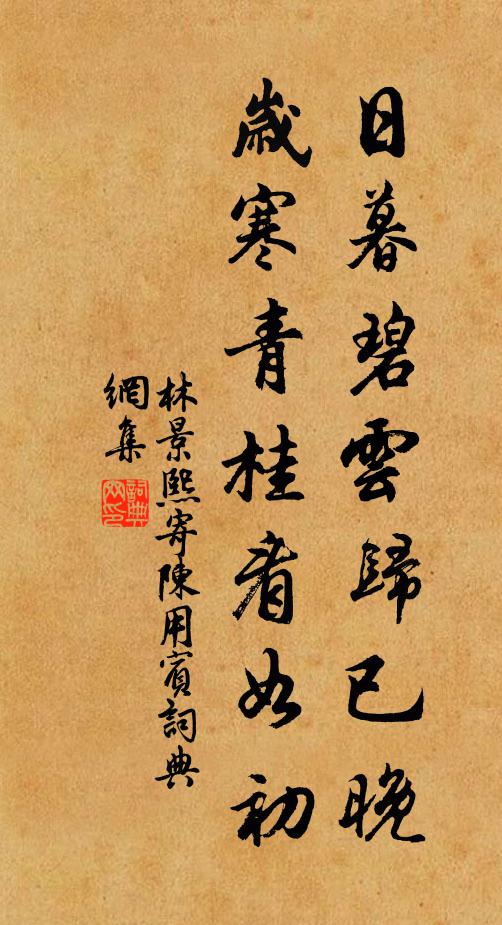 日暮碧雲歸已晚
歲寒青桂看如初
林景熙寄陳用賓詞典
網集
詞典
网印